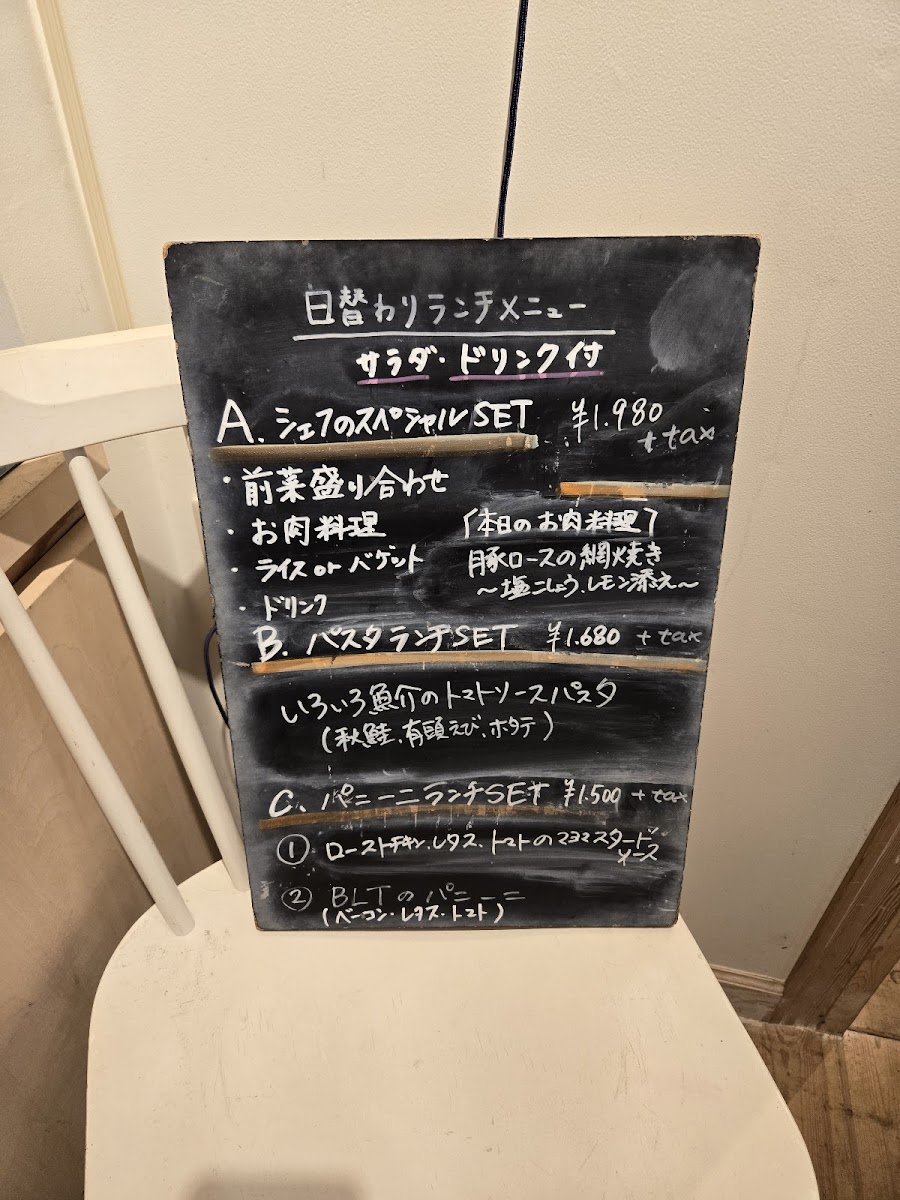 日替わりランチメニュー
サラダ・ドリンク付
A. シェフのスペシャルSET ¥1.980
+tax
・前菜盛り合わせ
・お肉料理
・ライス or バゲット
・ドリンク
「本日のお肉料理」
豚ロースの網焼き
〜塩こしょう、レモン添え〜
B. パスタランチSET ¥1.680 +tax
いろいろ魚介のトマトソースパスタ
(秋鮭、有頭えび、ホタテ)
C. パニーニランチSET ¥1.500 +tax
① ローストチキン、レタス、トマトのマヨマスタード
ソース
② BLTのパニーニ
(ベーコン・レタス・トマト)